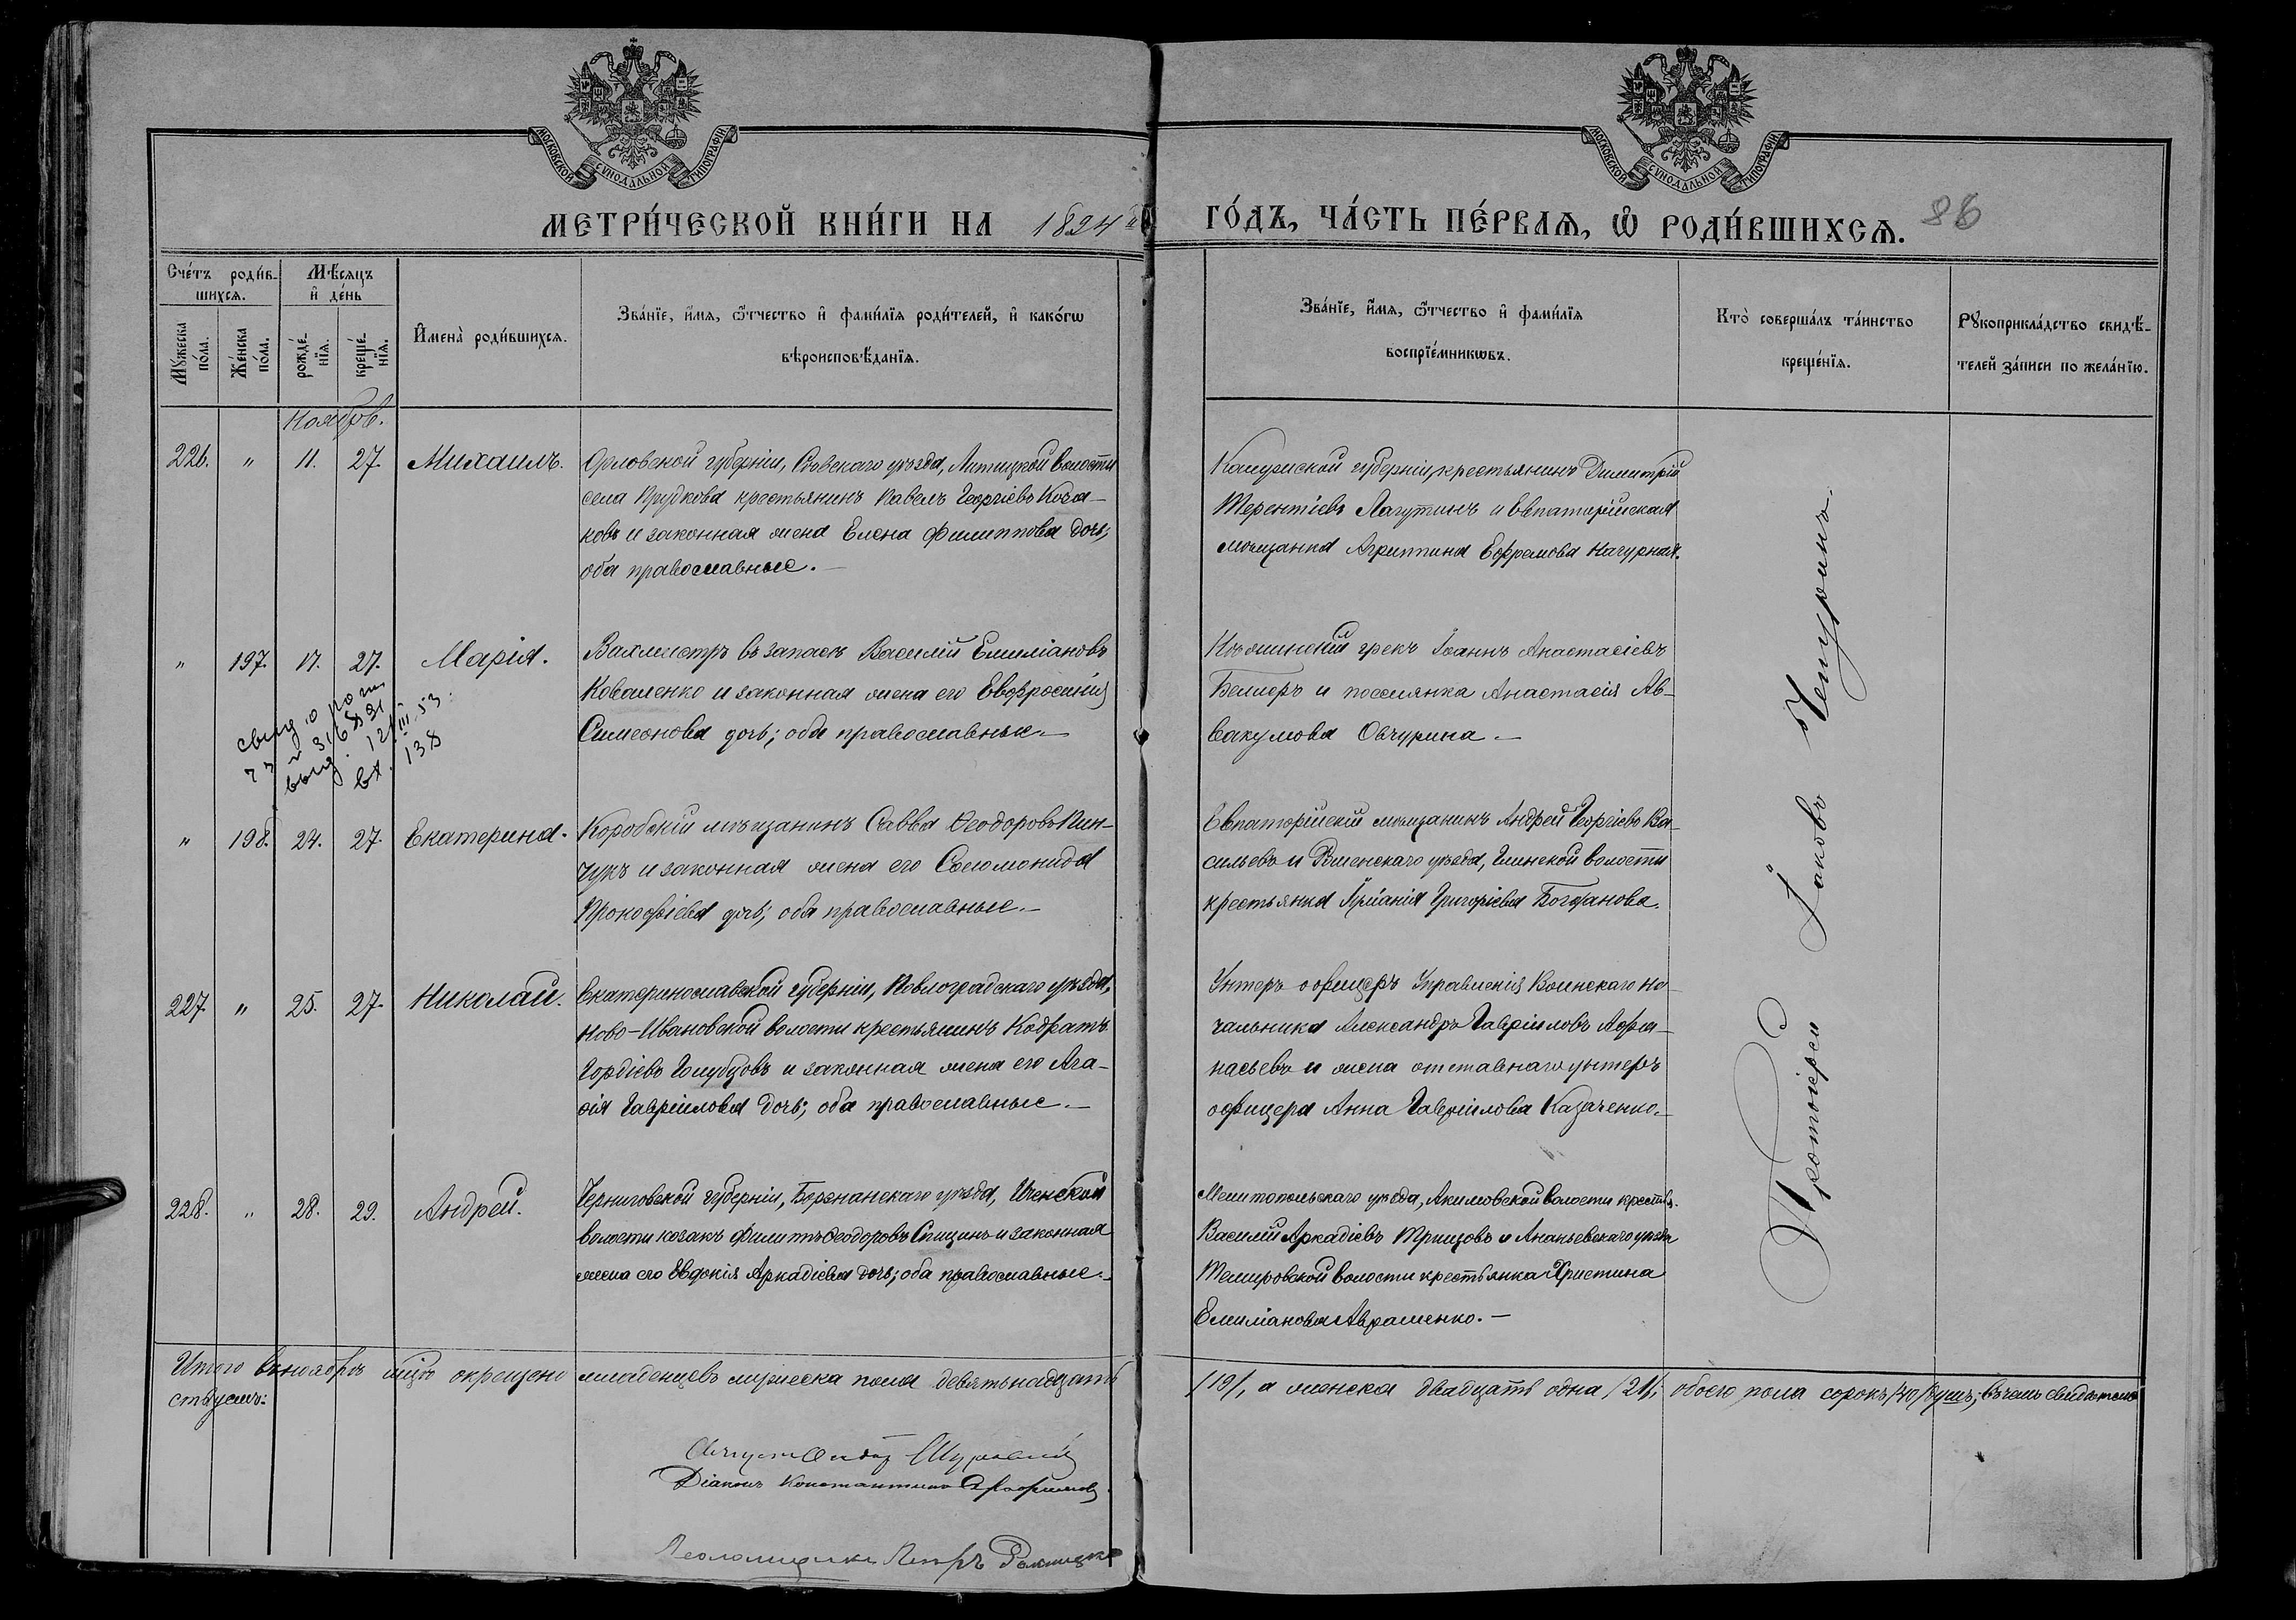 МОСКОВСКОЙ СѴНОДАЛЬНОЙ ТИПОГРАФІИ
МОСКОВСКОЙ СѴНОДАЛЬНОЙ ТИПОГРАФІИ
МЕТРИ́ЧЕСКОЙ КНИ́ГИ НА 1894й
ГО́ДЪ, ЧА́СТЬ ПЕ́РВАѦ, Ѡ҆ РОДИ́ВШИХСѦ. 86
Сче́тъ роди́в-
шихсѧ.
Мѣ́сѧцъ
и҆ де́нь
Мꙋ́жеска
по́ла.
Же́нска
по́ла.
рожде́-
нїѧ.
креще́-
нїѧ.
И҆мена̀ роди́вшихсѧ.
Зва́нїе, и҆́мѧ, ѻ҆́тчество и҆ фами́лїѧ роди́телей, и҆ како́гѡ
вѣроисповѣ́данїѧ.
Зва́нїе, и҆́мѧ, ѻ҆́тчество и҆ фами́лїѧ
воспрїе́мникѡвъ.
Кто̀ соверша́лъ та́инство
креще́нїѧ.
Рꙋкоприкла́дство свидѣ́-
телей за́писи по жела́нїю.
Ноябрь.
226. " 11. 27. Михаилъ.
Орловской губерніи, Сѣвскаго уѣзда, волости
села Прудкова крестьянинъ Павелъ Георгіевъ Коза-
ковъ и законная жена Елена Филиппова дочь;
оба православные.—
Калужской губерніи, крестьянинъ Димитрій
Терентіевъ Лагутинъ и Евпаторійская
мѣщанка Агриппина Ефремова Нагурная.
" 197. 17. 27. Марія.
Вахмистръ въ запасѣ Василій Емиліановъ
Коваленко и законная жена его Евфросинія
Симеонова дочь; оба православные.—
грекъ Іоаннъ Анастасіевъ
и поселянка Анастасія Ав-
вакумова Овчурина.—
свид. о рожд.
316831
выд. 12/III 53
вх. 138
" 198. 24. 27. Екатерина.
Коробскій мѣщанинъ Савва Ѳеодоровъ Пин-
чукъ и законная жена его Соломонида
Прокофіева дочь; оба православные.—
Евпаторійскій мѣщанинъ Андрей Георгіевъ Ва-
сильевъ и уѣзда, Глинской волости
крестьянка Григоріева Богданова.
227. " 25. 27. Николай.
Екатеринославской губерніи, Павлоградскаго уѣзда,
Ново-Ивановской волости крестьянинъ Кодратъ
Гордіевъ Голубцовъ и законная жена его Ага-
ѳія Гавріилова дочь; оба православные.—
Унтеръ офицеръ Управленія Воинскаго На-
чальника Александръ Гавріиловъ Афа-
насьевъ и жена отставнаго унтеръ
офицера Анна Гавріилова Казаченко.—
228. " 28. 29. Андрей.
Черниговской губерніи, Борзнанскаго уѣзда, Иченской
волости козакъ Филиппъ Ѳеодоровъ Спицинъ и законная
жена его Евдокія Аркадіева дочь; оба православные.—
Мелитопольскаго уѣзда, Акимовской волости крестьян.
Василій Аркадіевъ и Ананьевскаго уѣзда
волости крестьянка Христина
Емиліанова Авраменко.—
Протоіерей Іаковъ Чепуринъ.
Итого въ ноябрѣ мцѣ окрещено младенцевъ мужеска пола девятьнадцать
/19/, а женска двадцать одна /21/, обоего пола сорокъ /40/ душъ; въ чемъ свидѣтель-
ствуемъ:
Діаконъ Константинъ
Псаломщикъ Петръ